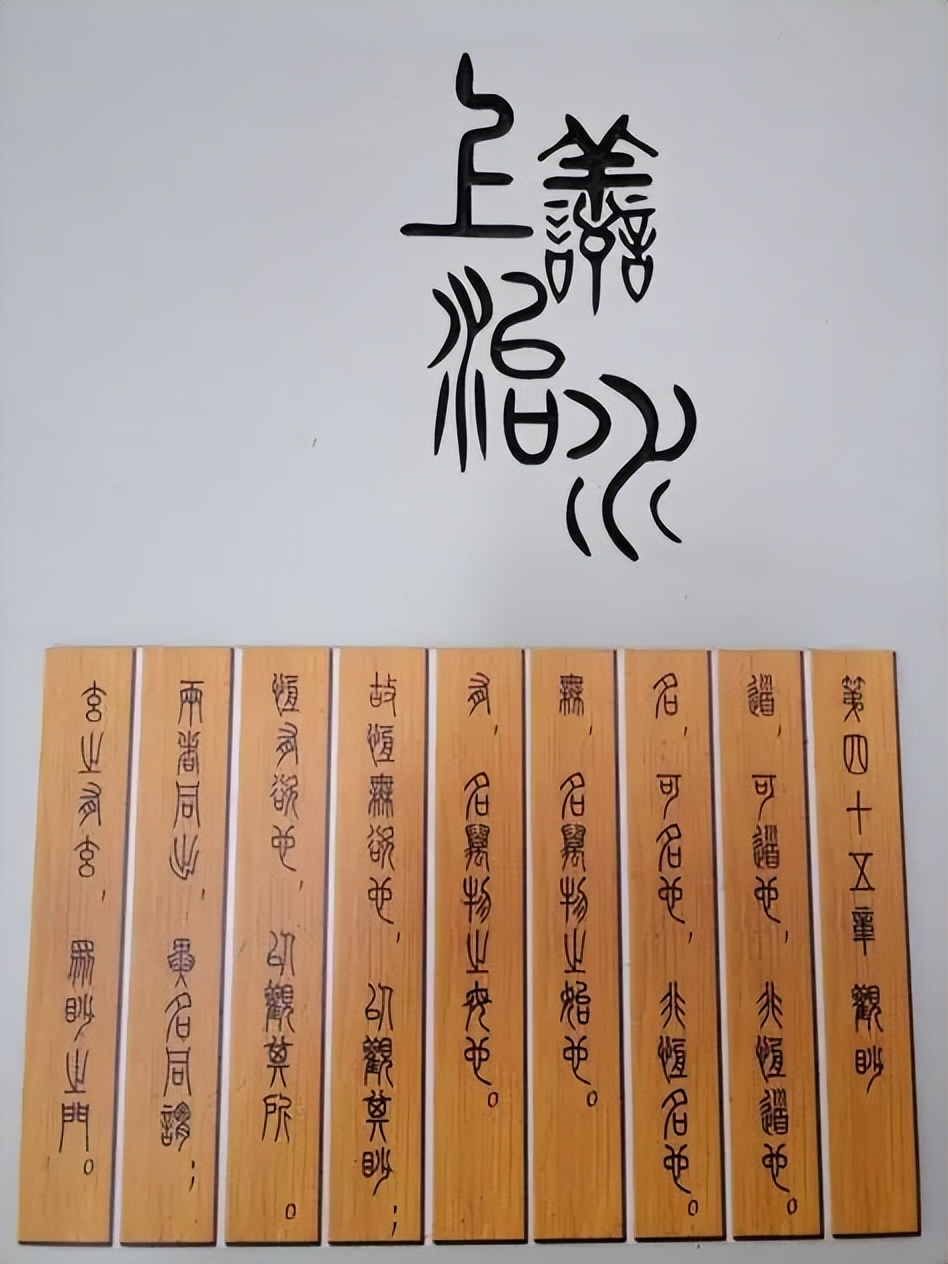 上善
治水
第四十五章 觀眇
道，可道也，非恆道也。
名，可名也，非恆名也。
無，名萬物之始也。
有，名萬物之母也。
故恆無欲也，以觀其眇；
恆有欲也，以觀其所 。
兩者同出，異名同謂；
玄之有玄，眾眇之門。